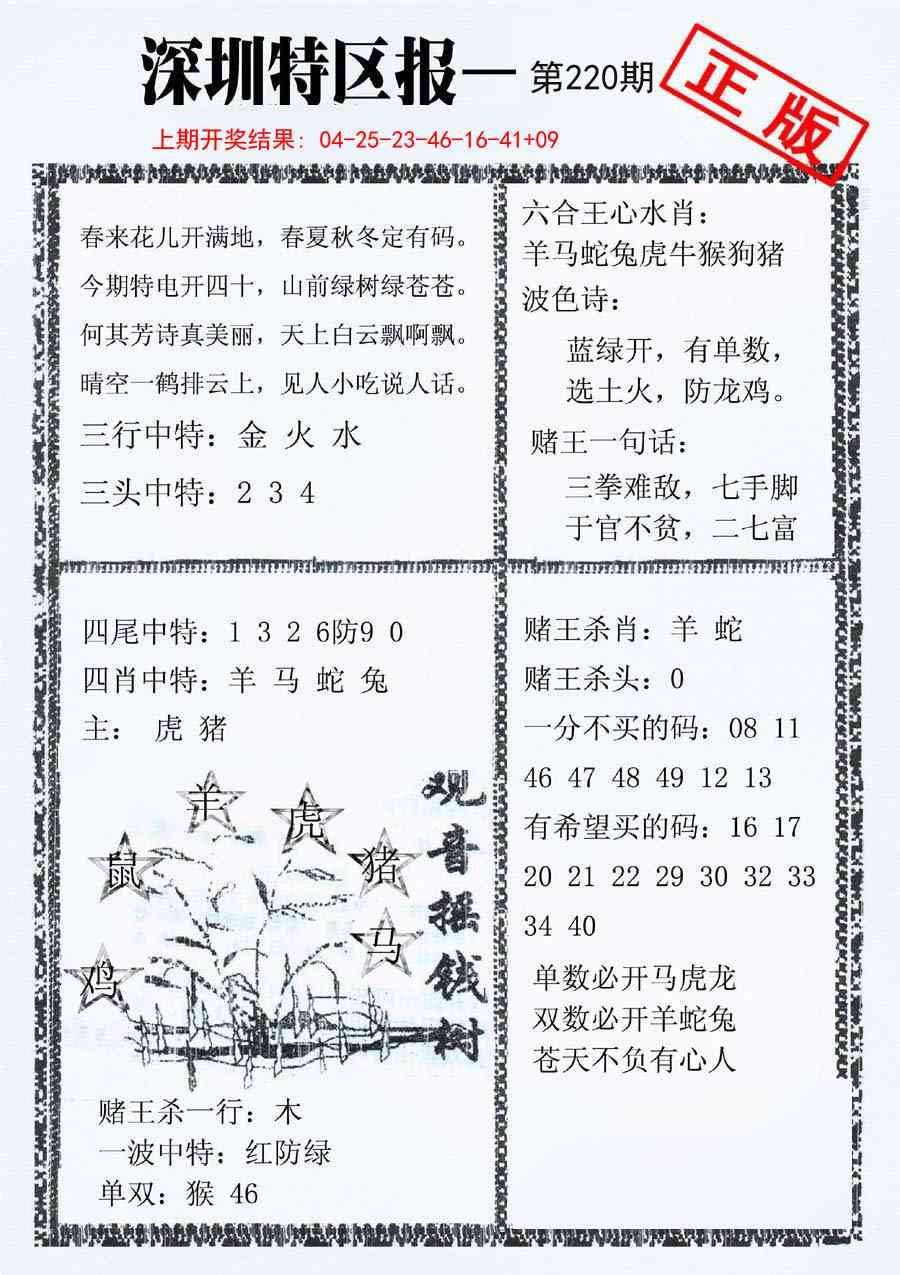 深圳特区报一 第220期
正版
上期开奖结果：04-25-23-46-16-41+09
春来花儿开满地，春夏秋冬定有码。
今期特电开四十，山前绿树绿苍苍。
何其芳诗真美丽，天上白云飘啊飘。
晴空一鹤排云上，见人小吃说人话。
三行中特：金 火 水
三头中特：2 3 4
六合王心水肖：
羊马蛇兔虎牛猴狗猪
波色诗：
蓝绿开，有单数，
选土火，防龙鸡。
赌王一句话：
三拳难敌，七手脚
于官不贫，二七富
四尾中特：1 3 2 6防9 0
四肖中特：羊 马 蛇 兔
主： 虎 猪
羊
虎
鼠
猪
马
鸡
观音摇钱树
赌王杀一行：木
一波中特：红防绿
单双：猴 46
赌王杀肖：羊 蛇
赌王杀头：0
一分不买的码：08 11
46 47 48 49 12 13
有希望买的码：16 17
20 21 22 29 30 32 33
34 40
单数必开马虎龙
双数必开羊蛇兔
苍天不负有心人